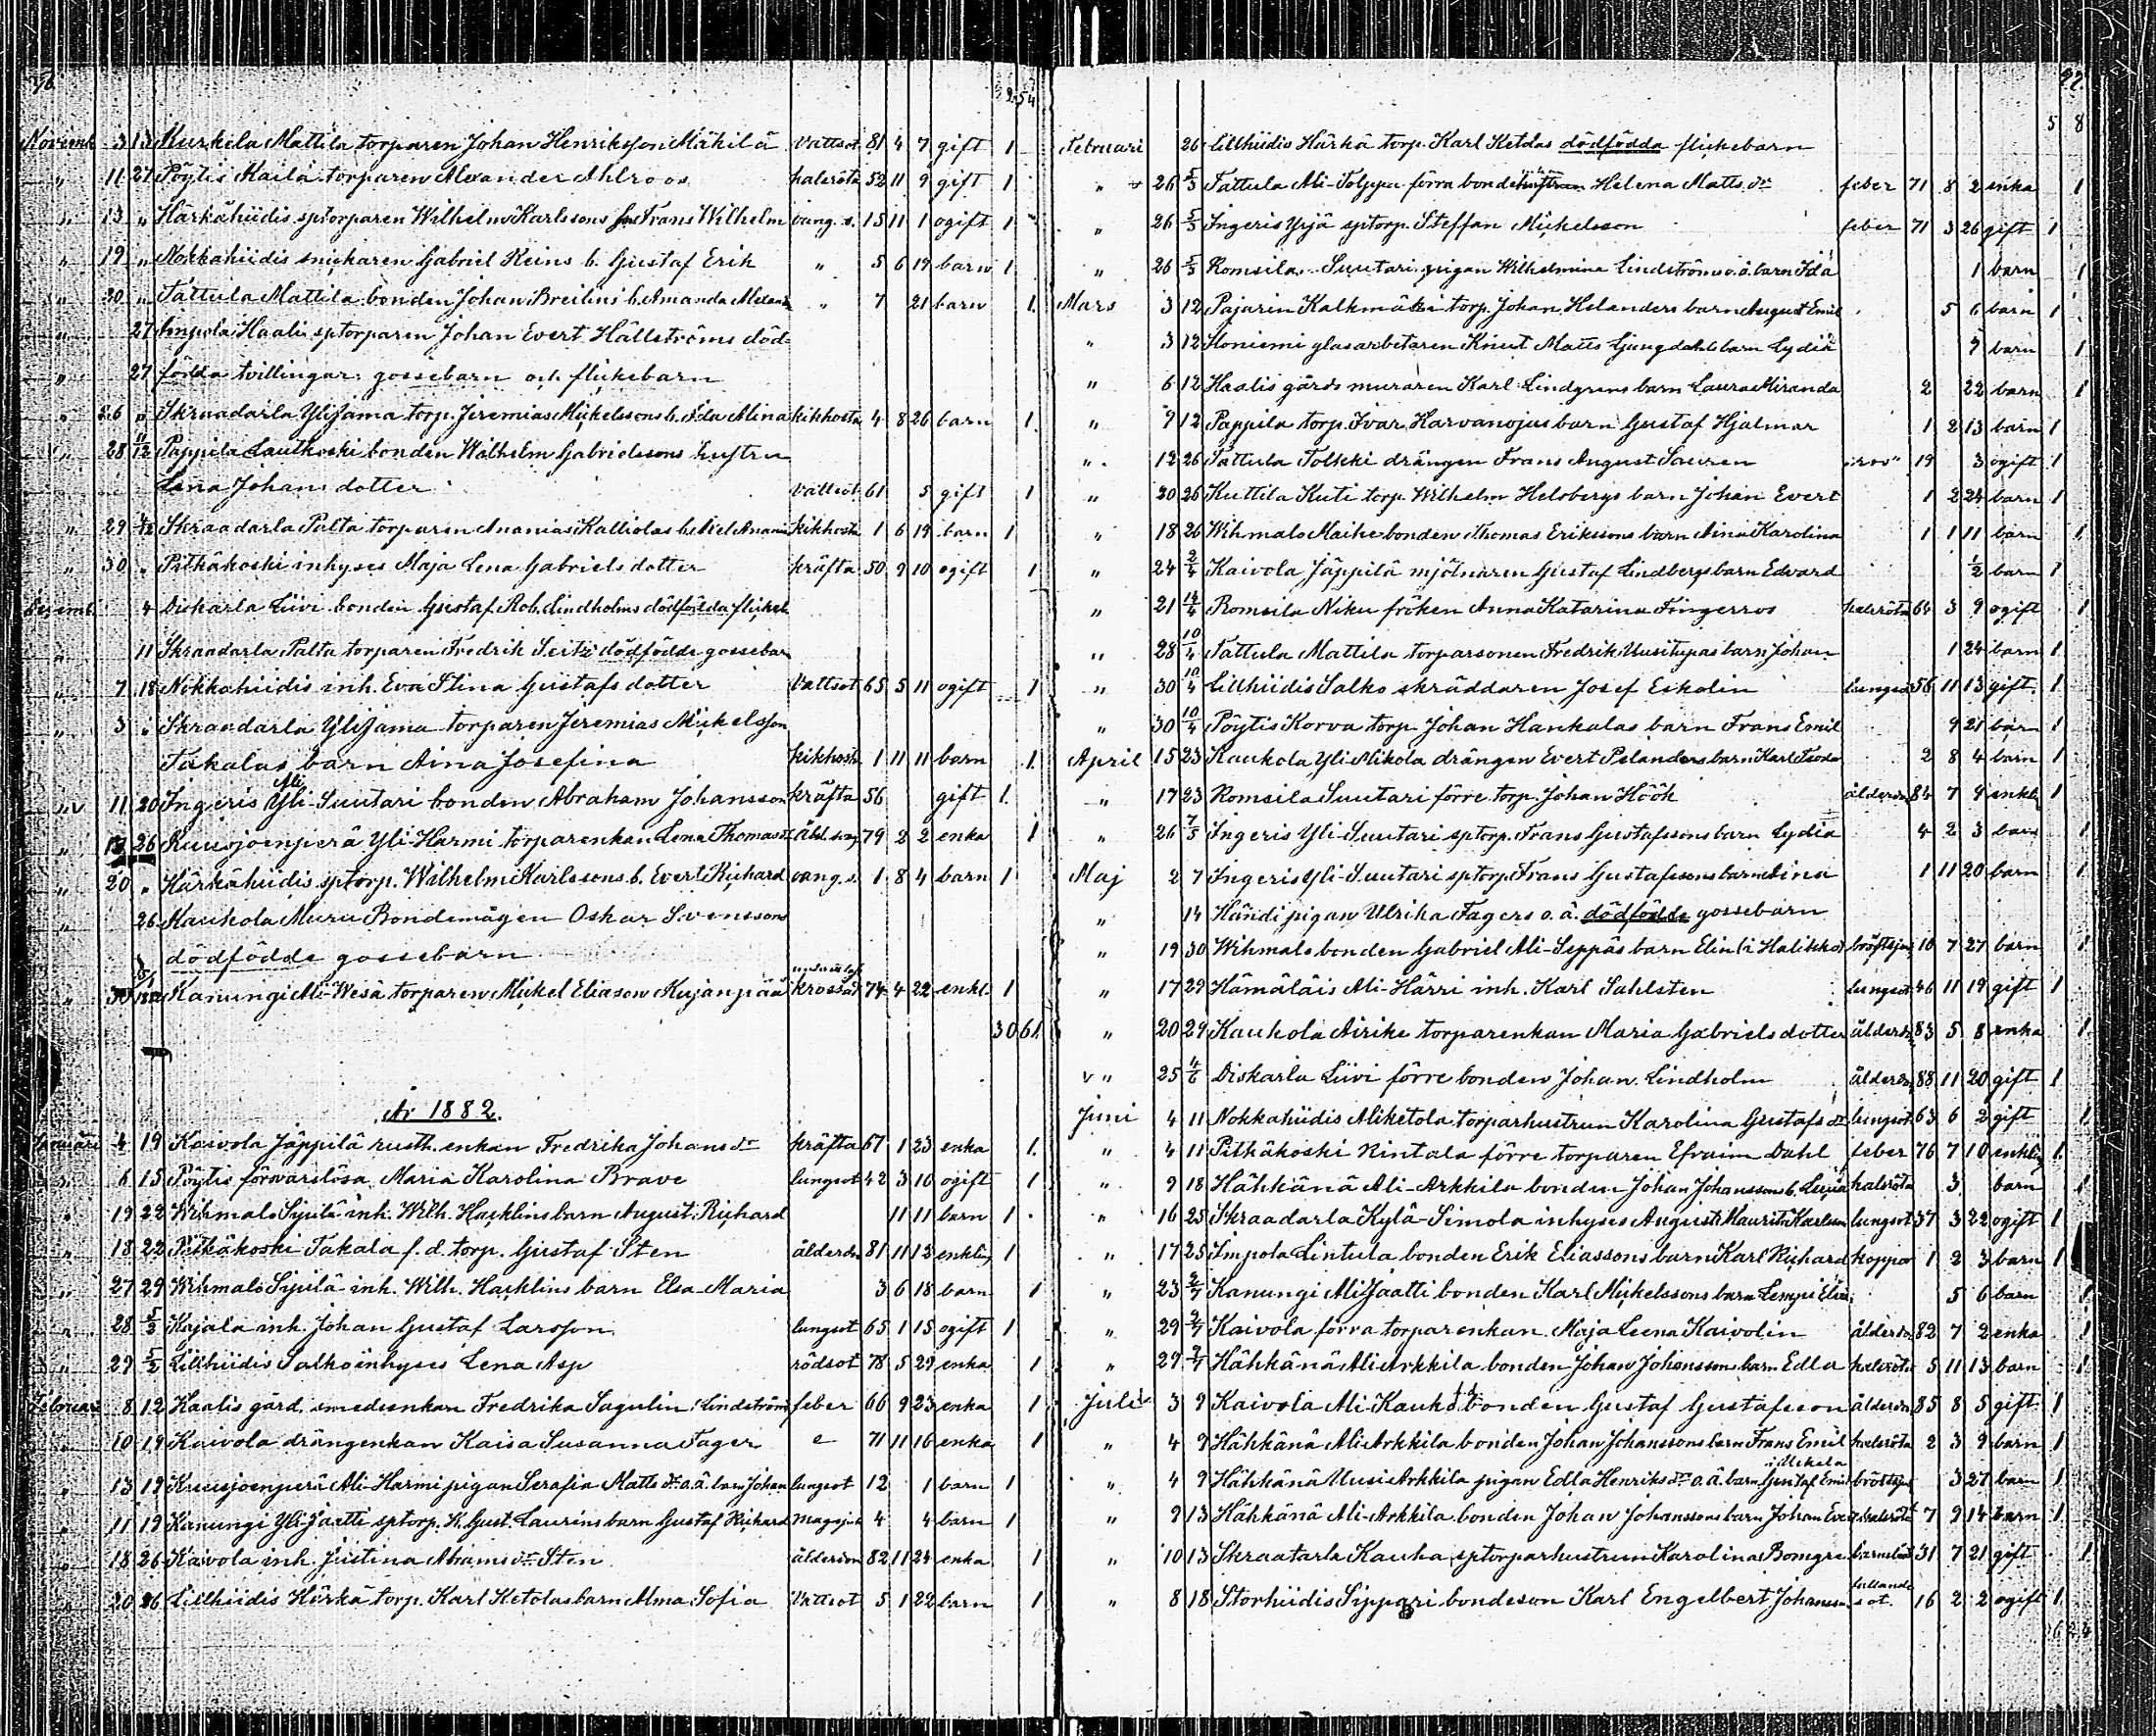 76
2954
Novemb. 3 13 Kurkela Mattila torparen Johan Henriksson Mäkilä Vattsot 81 4 7 gift 1
" 11 27 Pöytis Kailä torparen Alexander Ahlroos halsröta 52 11 9 gift 1
" 13 " Härkähiidis sptorparen Wilhelm Karlssons son Frans Wilhelm vang. s. 15 11 1 ogift 1
" 19 " Nokkahiidis snickaren Gabriel Reins b. Gustaf Erik " 5 6 19 barn 1
" 20 " Tattula Mattila bonden Johan Breilins b. Amanda " 7 21 barn 1
" 27 Impola Haali sptorparen Johan Evert Hällströms död-
" 27 födda tvillingar: gossebarn och flickebarn
" 26 " Skraadarla Ylijama torp. Jeremias Mickelssons b. Ida Alina kikhosta 4 8 26 barn 1
" 28 11/12 Pappila Lautkoski bonden Wilhelm Gabrielssons hustru
Lena Johans dotter Vattsot 61 5 gift 1
" 29 Skraadarla Palta torparen Ananias Kalliolas b. kikhosta 1 6 19 barn 1
" 30 " Pitkäkoski inhyses Maja Lena Gabriels dotter kräfta 50 9 10 ogift 1
Decemb. 4 Diskarla Liivi bonden Gustaf Rob. Lindholms dödfödda flickeb.
" 11 Skraadarla Palta torparen Fredrik Seitz dödfödde gossebarn
" 7 18 Nokkahiidis inh. Eva Stina Gustafs dotter Vattsot 65 5 11 ogift 1
" 3 " Skraadarla Ylijama torparen Jeremias Mickelsson
Takalas barn Aina Josefina kikhosta 1 11 11 barn 1
" 11 20 Ingeris Ali Yli-Suutari bonden Abraham Johansson kräfta 56 gift 1
" 26 Kuusjoenperä Yli-Harmi torparenkan Lena Thomasd:r Åld. svag 79 2 2 enka 1
" 20 " Härkähiidis sptorp. Wilhelm Karlssons b. Evert Richard vang. s. 1 8 4 barn 1
26 Kauhola Muru Bondemågen Oskar Svenssons
dödfödde gossebarn
" 30 Kanungi Ali-Wesä torparen Mickel Eliasson Kujanpää krossad 74 4 22 enkl. 1
30 61
År 1882.
Januari 4 19 Kaivola Jäppilä rusth. enkan Fredrika Johans d:r kräfta 67 1 23 enka 1
" 6 15 Pöytis förvarslösa Maria Karolina Brave lungsot 42 3 10 ogift 1
" 19 22 Wihmalo Sipilä inh. Wilh. Hacklins barn August Richard 11 11 barn 1
" 18 22 Pitkäkoski Takala f. d. torp. Gustaf Sten ålderdn 81 11 12 enkling 1
" 27 29 Wihmalo Sipilä inh. Wilh. Hacklins barn Elsa Maria 3 6 18 barn 1
" 28 5/3 Kajala inh. Johan Gustaf Larsson lungsot 65 1 15 ogift 1
" 29 5/3 Lillhiidis Salko inhyses Lena Asp rödsot 78 5 29 enka 1
Februari 8 12 Haalis gård. smedsenkan Fredrika Sagulin (Lindström) feber 66 9 23 enka 1
" 10 19 Kaivola drängenkan Kaisa Susanna Fager 71 11 16 enka 1
" 13 19 Kuusjoenperä Ali-Harmi pigan Serafia Matts d:r o.ä. barn Johan lungsot 12 1 barn 1
" 11 19 Kanungi Yli-Jaatti sptorp. K. Gust. Laurins barn Gustaf Richard magsjuk 4 4 barn 1
" 18 26 Kaivola inh. Justina Abrams d:r Sten ålderdom 82 11 24 enka 1
" 20 26 Lillhiidis Härkä torp. Karl Ketolas barn Alma Sofia Vattsot 5 1 22 barn 1
77.
5 8
Februari 26 Lillhiidis Härkä torp. Karl Ketolas dödfödda flickebarn
" 26 5/3 Tattula Ali-Tolppa förra bonde Helena Matts d:r feber 71 8 2 enka 1
" 26 5/3 Ingeris Yrjä sptorp. Steffan Mickelsson feber 71 3 26 gift 1
" 26 5/3 Romsila Suutari pigan Wilhelmina Lindströms o.ä. barn Ida 1 barn 1
Mars 3 12 Pajarin Kalkmäki torp. Johan Helanders barn August Emil 5 6 barn 1
" 3 12 Honiemi glasarbetaren Knut Matts Ljungdahls barn Lydia 7 barn 1
" 6 12 Haalis gårds muraren Karl Lindgrens barn Laura Miranda 2 22 barn 1
" 9 12 Pappila torp. Ivar Karvanojas barn Gustaf Hjalmar 1 2 13 barn 1
" 12 26 Tattula Tolkki drängen Frans August Sauren 19 3 ogift 1
" 20 26 Kuttila Kuti torp. Wilhelm Helsbergs barn Johan Evert 1 2 24 barn 1
" 18 26 Wihmalo Maihe bonden Thomas Erikssons barn Aina Karolina 1 1 11 barn 1
" 24 2/4 Kaivola Jäppilä mjölnaren Gustaf Lindbergs barn Edvard 1/2 barn 1
" 21 14/4 Romsila Niku fröken Anna Katarina Fingerroos halsröta 64 3 9 ogift 1
" 28 10/4 Tattula Mattila torparsonen Fredrik Uusitupas barn Johan 1 24 barn 1
" 30 10/4 Lillhiidis Salko skräddaren Josef Eskolin lungsot 56 11 13 gift 1
" 30 10/4 Pöytis Korva torp. Johan Hankalas barn Frans Emil 9 21 barn 1
April 15 23 Kauhola Yli-Mikola drängen Evert Pelanders barn Karl 2 8 4 barn 1
" 17 23 Romsila Suutari förre torp. Johan Höök ålderdn 84 7 9 enkling 1
" 26 7/5 Ingeris Yli-Suutari sptorp. Frans Gustafssons barn Lydia 4 2 3 barn 1
Maj 2 7 Ingeris Yli-Suutari sptorp. Frans Gustafssons barn Aina 1 11 20 barn 1
" 14 Händi pigan Ulrika Fagers o.ä. dödfödde gossebarn
" 19 30 Wihmalo bonden Gabriel Ali-Seppäs barn Elin (i Halikko) bröstsjuk 10 7 27 barn 1
" 17 29 Hämäläis Ali-Härri inh. Karl Sahlsten lungsot 46 11 19 gift 1
" 20 29 Kauhola Airike torparenkan Maria Gabriels dotter ålderdn 83 5 8 enka 1
" 25 4/6 Diskarla Liivi förre bonden Johan Lindholm ålderdn 88 11 20 gift 1
Juni 4 11 Nokkahiidis Miketola torparhustrun Karolina Gustafs d:r lungsot 63 6 2 gift 1
" 4 11 Pitkäkoski Rintala förre torparen Efraim Dahl feber 76 7 10 enkling 1
" 9 18 Hähkänä Ali-Arkkila bonden Johan Johanssons b. halsröta 3 barn 1
" 16 25 Skraadarla Kylä-Simola inhyses August Maurits Karlsson lungsot 37 3 22 ogift 1
" 17 25 Impola Lintula bonden Erik Eliassons barn Karl Richard koppor 1 2 3 barn 1
" 23 2/7 Kanungi Ali-Jaatti bonden Karl Mickelssons barn Lempi 5 6 barn 1
" 29 2/7 Kaivola förra torparenkan Maja Leena Kaivolin ålderdn 82 7 2 enka 1
" 29 2/7 Hähkänä Ali-Arkkila bonden Johan Johanssons barn Edla halsröta 5 11 13 barn 1
Juli 3 9 Kaivola Ali-Kauko bonden Gustaf Gustafsson ålderdn 85 8 5 gift 1
" 4 9 Hähkänä Ali-Arkkila bonden Johan Johanssons barn Frans Emil halsröta 2 3 9 barn 1
" 4 9 Hähkänä Uusi-Arkkila pigan Edla Henriks d:r o.ä. barn Gustaf Emil bröstsjuk 3 27 barn 1
" 9 13 Hähkänä Ali-Arkkila bonden Johan Johanssons barn Johan Evert halsröta 7 9 14 barn 1
" 10 13 Skraatarla Kauha sptorparhustrun Karolina Bomgren barnsbörd 31 7 21 gift 1
" 8 18 Storhiidis Sippari bondeson Karl Engelbert Johansson fallandesot. 16 2 2 ogift 1
26 24